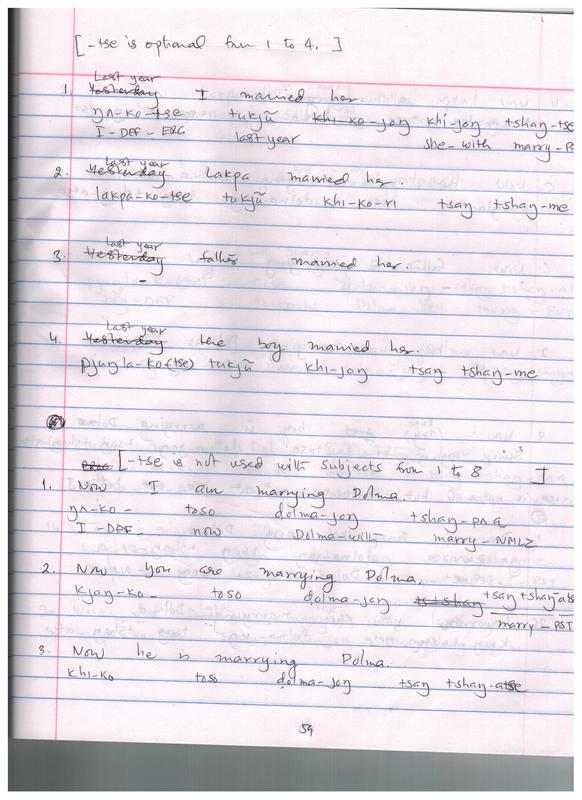 [ -tse is optional from 1 to 4. ]
Last year
1. Yesterday I married her.
ŋʌ-ko-tse tukjũ khi-ko-joŋ khi-joŋ tshaŋ-tse
I-DEF-ERG last year she-with marry-P
Last year
2. Yesterday Lakpa married her.
lakpa-ko-tse tukjũ khi-ko-ri tsaŋ tshaŋ-me
Last year
3. Yesterday father married her.
-
Last year
4. Yesterday the boy married her.
pjuŋla-ko(tse) tukjũ khi-joŋ tsaŋ tshaŋ-me
[ -tse is not used with subjects from 1 to 8 ]
1. Now I am marrying Dolma.
ŋʌ-ko- toso dolma-joŋ tshaŋ-pʌ
I-DEF- now Dolma-with marry-NMLZ
2. Now you are marrying Dolma.
kjaŋ-ko- toso dolma-joŋ tsaŋ tshaŋ
marry-PST
3. Now he is marrying Dolma.
khi-ko toso dolma-joŋ tsaŋ tshaŋ-atse
59